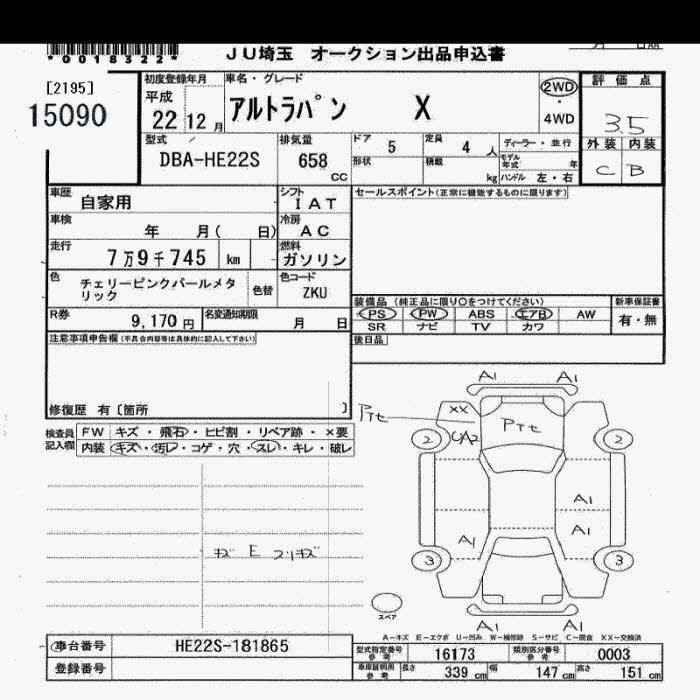 *0018322*
JU埼玉 オークション出品申込書
[2195]
15090
初度登録年月
平成
22 12月
車名・グレード
アルトラパン X
2WD
・
4WD
評価点
3.5
外装 内装
C B
型式
DBA-HE22S
排気量
658
CC
ドア
5
定員
4 人
形状
積載
kg
ディーラー・並行
モデル年式 年
ハンドル 左・右
車歴
自家用
シフト
IAT
セールスポイント(正常に機能するものに限ります)
車検
年 月( 日)
冷房
AC
走行
7万9千745 km
燃料
ガソリン
色
チェリーピンクパールメタリック
色替
色コード
ZKU
装備品 (純正品に限り○をつけてください)
新車保証書
PS PW ABS エアB AW
有・無
SR ナビ TV カワ
R券
9,170円
名変通知期限
月 日
後日品
注意事項申告欄(不具合内容等は具体的に記入して下さい)
修復歴 有〔箇所 〕
検査員
記入欄
FW キズ・飛石・ヒビ割・リペア跡・×要
内装 キズ・汚レ・コゲ・穴・スレ・キレ・破レ
A1 A1
XX
UA2
2 2
A1
A1
A1
3 3
A1 A1
スペア
A-キズ E-エクボ U-凹み W-補修跡 S-サビ C-腐食 XX-交換済
車台番号
HE22S-181865
登録番号
型式指定番号
参考
16173
類別区分番号
参考
0003
車庫証明用
参考
長さ 339 cm 幅 147 cm 高さ 151 cm